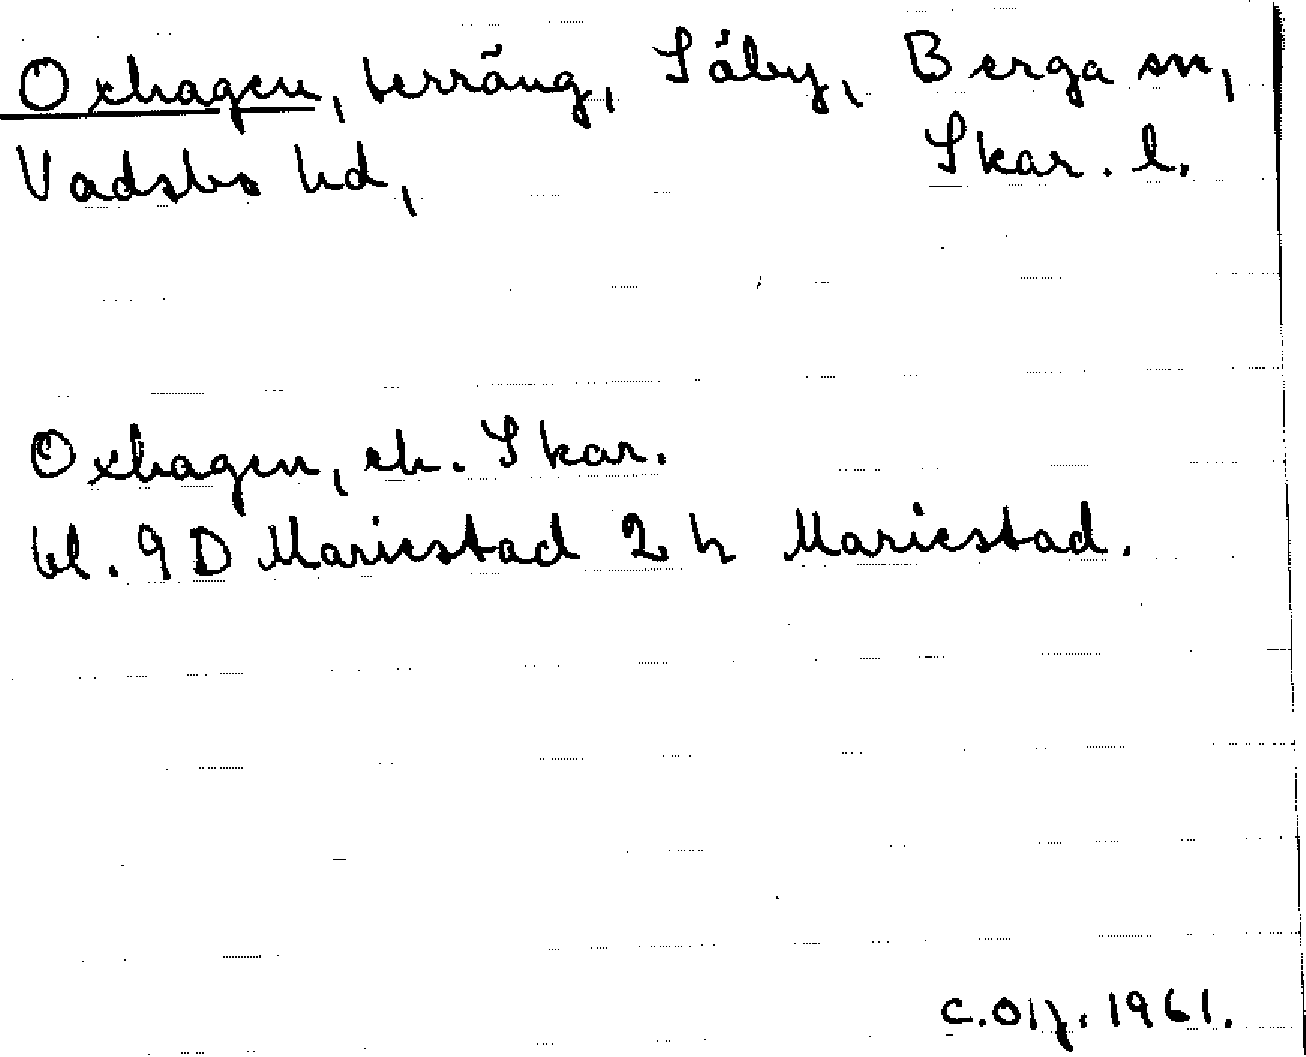 Oxhagen, terräng, Säby, Berga sn,
Vadsbo hd, Skar. l.
Oxhagen, ek. Skar.
bl. 9 D Mariestad 2 h Mariestad.
1961.